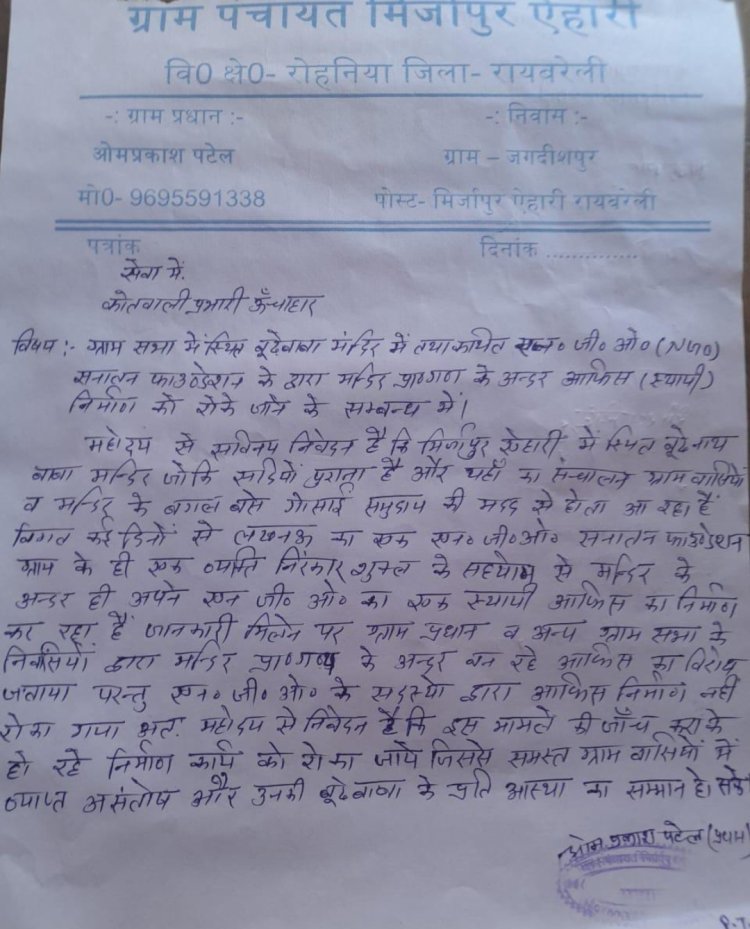 ग्राम पंचायत मिर्जापुर ऐहारी
वि0 क्षे0- रोहनिया जिला- रायबरेली
-: ग्राम प्रधान :-
-: निवास :-
ओमप्रकाश पटेल
ग्राम – जगदीशपुर
मो0- 9695591338
पोस्ट- मिर्जापुर ऐहारी रायबरेली
पत्रांक
दिनांक ..............
सेवा में,
कोतवाली प्रभारी ऊँचाहार
विषय :- ग्राम सभा में स्थित बूढ़ेबाबा मंदिर में तथाकथित एन॰ जी॰ ओ॰ (NGO)
सनातन फाउण्डेशन के द्वारा मन्दिर प्रा०गण के अन्दर आफिस (स्थायी)
निर्माण को रोके जाने के सम्बन्ध में।
महोदय से सविनय निवेदन है कि मिर्जापुर ऐहारी में स्थित बूढ़ेनाथ
बाबा मन्दिर जोकि सदियों पुराना है और यहाँ का संचालन ग्राम वासियों
व मन्दिर के बगल बसे गोसाई समुदाय की मदद से होता आ रहा है
विगत कई दिनों से लखनऊ का एक एन॰जी॰ओ॰ सनातन फाउण्डेशन
ग्राम के ही एक व्यक्ति निरंकार शुक्ल के सहयोग से मन्दिर के
अन्दर ही अपने एन जी॰ ओ॰ का एक स्थायी आफिस का निर्माण
कर रहा है जानकारी मिलने पर ग्राम प्रधान व अन्य ग्राम सभा के
निवासियों द्वारा मन्दिर प्रा०गण के अन्दर बन रहे आफिस का विरोध
जताया परन्तु एन॰ जी॰ ओ॰ के सदस्यो द्वारा आफिस निर्माण नहीं
रोका गया अतः महोदय से निवेदन है कि इस मामले की जाँच कराके
हो रहे निर्माण कार्य को रोका जाये जिससे समस्त ग्राम वासियों में
व्याप्त असंतोष और उनकी बूढ़ेबाबा के प्रति आस्था का सम्मान हो सके
ओम प्रकाश पटेल (प्रधान)